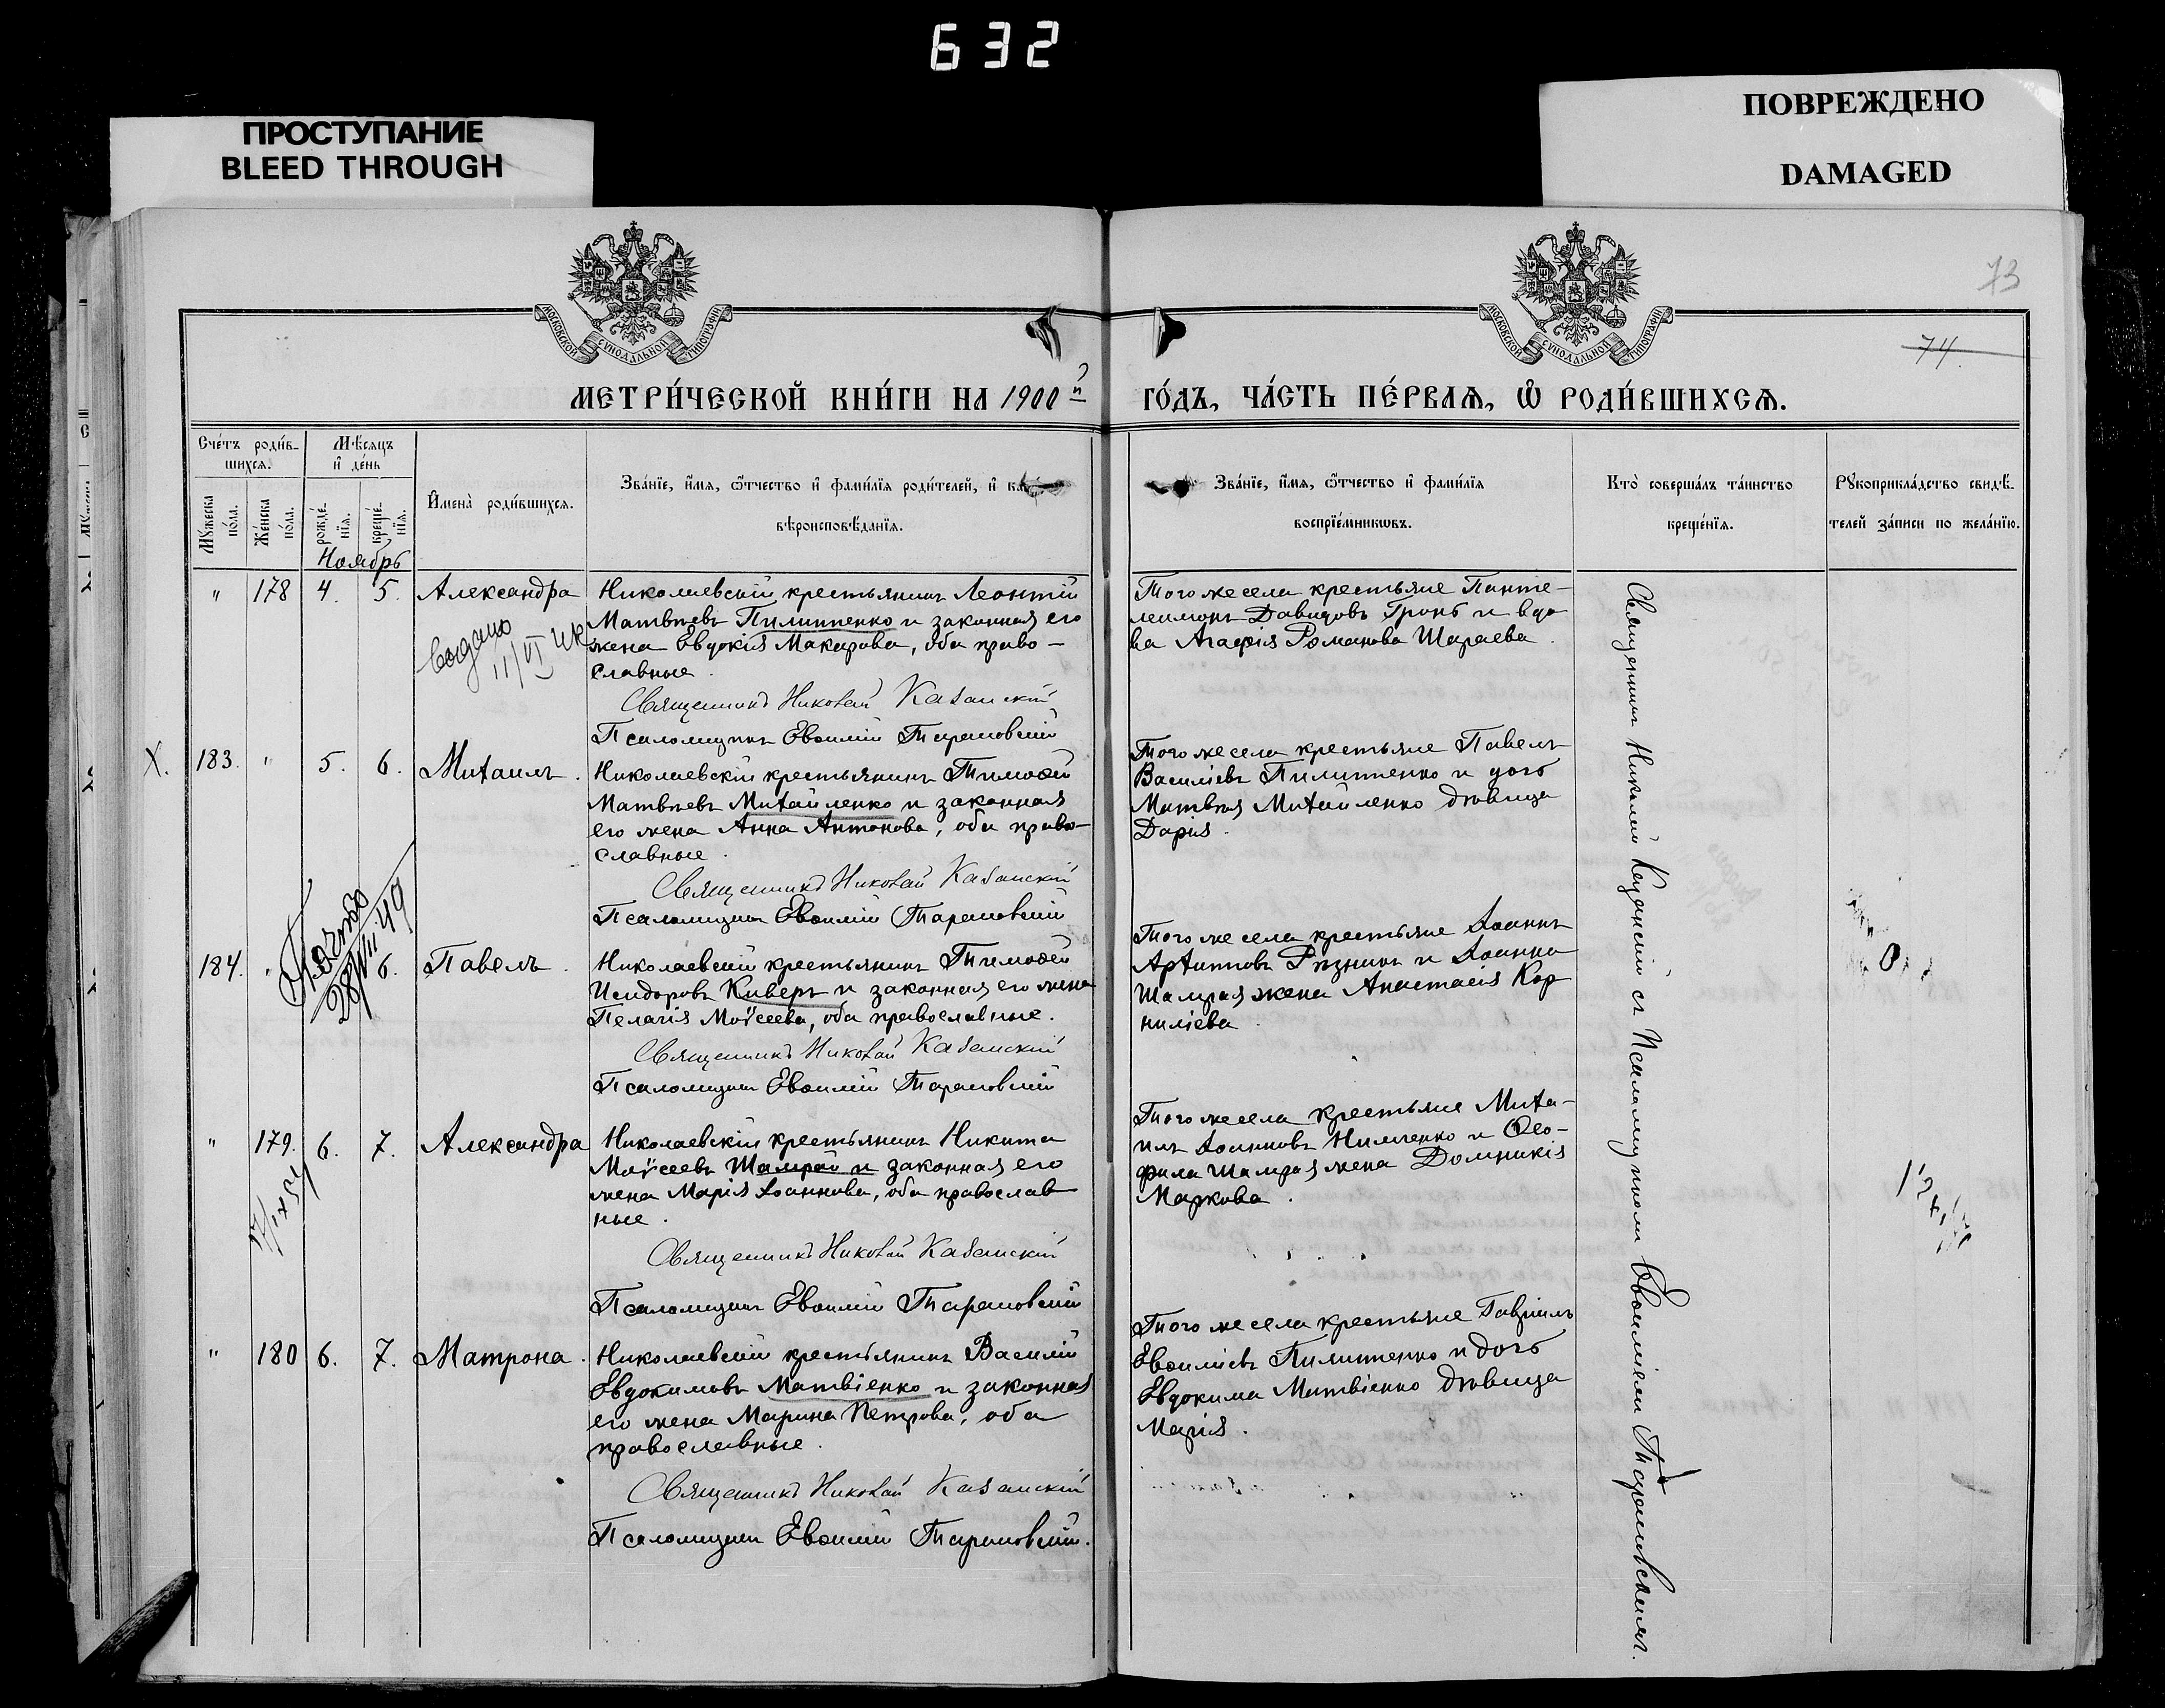 632
ПРОСТУПАНИЕ
BLEED THROUGH
ПОВРЕЖДЕНО
DAMAGED
73
74
МОСКОВСКОЙ СѴНОДАЛЬНОЙ ТИПОГРАФІИ
МОСКОВСКОЙ СѴНОДАЛЬНОЙ ТИПОГРАФІИ
МЕТРИ́ЧЕСКОЙ КНИ́ГИ НА 1900й
ГО́ДЪ, ЧА́СТЬ ПЕ́РВАѦ, Ѡ РОДИ́ВШИХСѦ.
Сче́тъ роди́в-
шихсѧ.
Мѣ́сѧцъ
и де́нь
Мꙋ́жеска по́ла.
Же́нска по́ла.
рожде́-
нїѧ.
креще́-
нїѧ.
Имена̀ роди́вшихсѧ.
Зва́нїе, и́мѧ, ѻ҆́тчество и фами́лїѧ роди́телей, и
вѣроисповѣ́данїѧ.
Зва́нїе, и́мѧ, ѻ҆́тчество и фами́лїѧ
воспрїе́мникѡвъ.
Кто̀ соверша́лъ та́инство
креще́нїѧ.
Рꙋкоприкла́дство свидѣ́-
телей за́писи по жела́нїю.
Ноябрь
" 178 4. 5. Александра
Николаевскій крестьянинъ Леонтій
Матвѣевъ Пилипенко и законная его
жена Евдокія Макарова, оба право-
славные.
Священникъ Николай Казанскій
Псаломщикъ Евѳимій Тарановскій
Того же села крестьяне Панте-
леимонъ Давидовъ Гронь и вдо
ва Агафія Романова Шараева.
Выдано
11/VI
X. 183. " 5. 6. Михаилъ.
Николаевскій крестьянинъ Тимоѳей
Матвѣевъ Михайленко и законная
его жена Анна Антонова, оба право-
славные.
Священникъ Николай Казанскій
Псаломщикъ Евѳимій Тарановскій
Того же села крестьяне Павелъ
Василіевъ Пилипенко и дочь
Матвѣя Михайленко дѣвица
Дарія.
184. " 6. Павелъ.
28/VII 49
Николаевскій крестьянинъ Тимоѳей
Исидоровъ Киверъ и законная его жена
Пелагія Моѵсеева, оба православные.
Священникъ Николай Казанскій
Псаломщикъ Евѳимій Тарановскій
Того же села крестьяне Іоаннъ
Архиповъ Рѣзникъ и Іоанна
Шамрая жена Анастасія Кор
ниліева.
" 179. 6. 7. Александра
Николаевскій крестьянинъ Никита
Моѵсеевъ Шамрай и законная его
жена Марія Іоаннова, оба православ
ные.
Священникъ Николай Казанскій
Псаломщикъ Евѳимій Тарановскій
Того же села крестьяне Миха-
илъ Іоанновъ Нимченко и Ѳео-
фила Шамрая жена Домникія
Маркова.
" 180 6. 7. Матрона.
Николаевскій крестьянинъ Василій
Евдокимовъ Матвіенко и законная
его жена Марина Петрова, оба
православные.
Священникъ Николай Казанскій
Псаломщикъ Евѳимій Тарановскій.
Того же села крестьяне Гавріилъ
Евѳиміевъ Пилипенко и дочь
Евдокима Матвіенко дѣвица
Марія.
Священникъ Николай Казанскій съ Псаломщикомъ Евѳиміемъ Тарановскимъ.